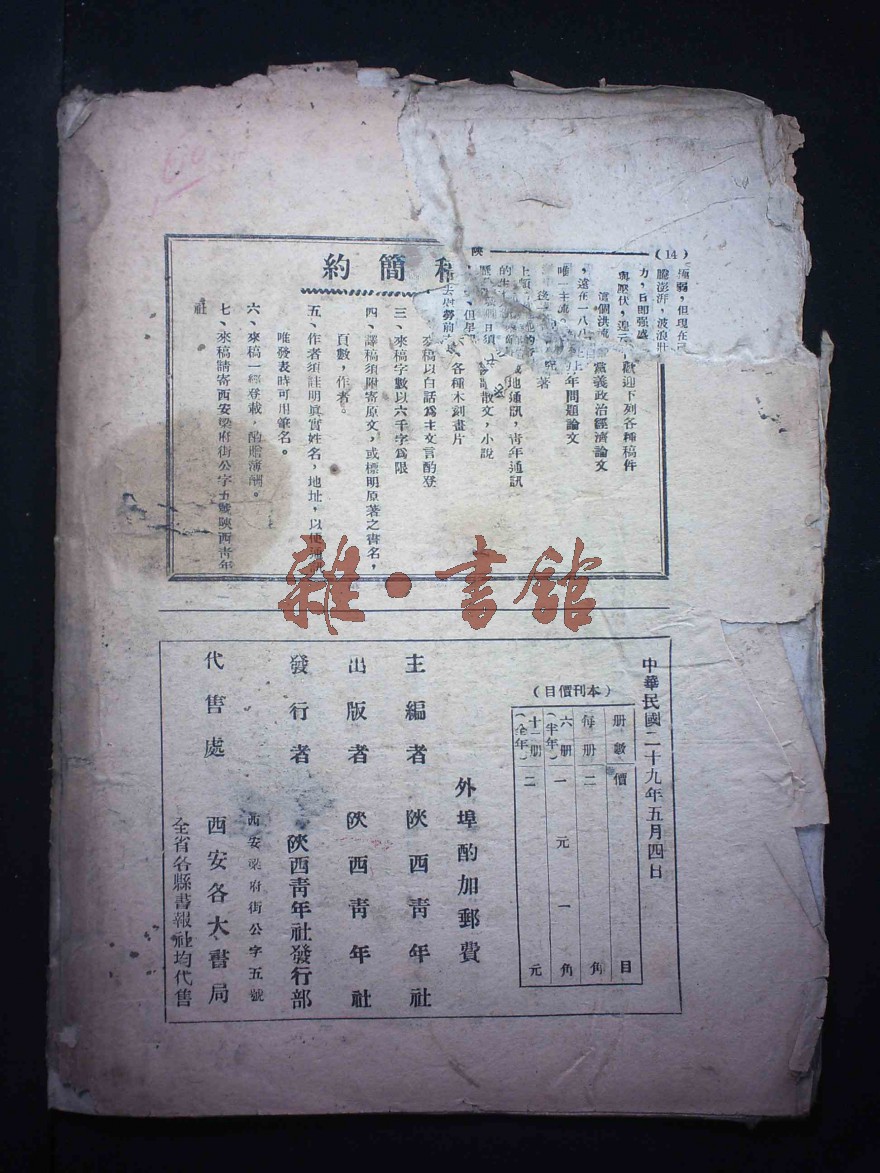 (14)
陝
稿簡約
歡迎下列各種稿件
黨義政治經濟論文
年問題論文
著
地通訊,青年通訊
散文,小說
各種木刻畫片
來稿以白話為主文言酌登
三、來稿字數以六千字為限
四、譯稿須附寄原文,或標明原著之書名,
頁數,作者。
五、作者須註明真實姓名,地址,以便通
唯發表時可用筆名。
六、來稿一經登載,酌贈薄酬。
七、來稿請寄西安梁府街公字五號陝西青年
社
雜·書館
中華民國二十九年五月四日
(本刊價目)
册數 價目
每册 二角
六册(半年) 一元一角
十二册(全年) 二元
外埠酌加郵費
主編者 陝西青年社
出版者 陝西青年社
發行者 陝西青年社發行部
西安梁府街公字五號
代售處 西安各大書局
全省各縣書報社均代售